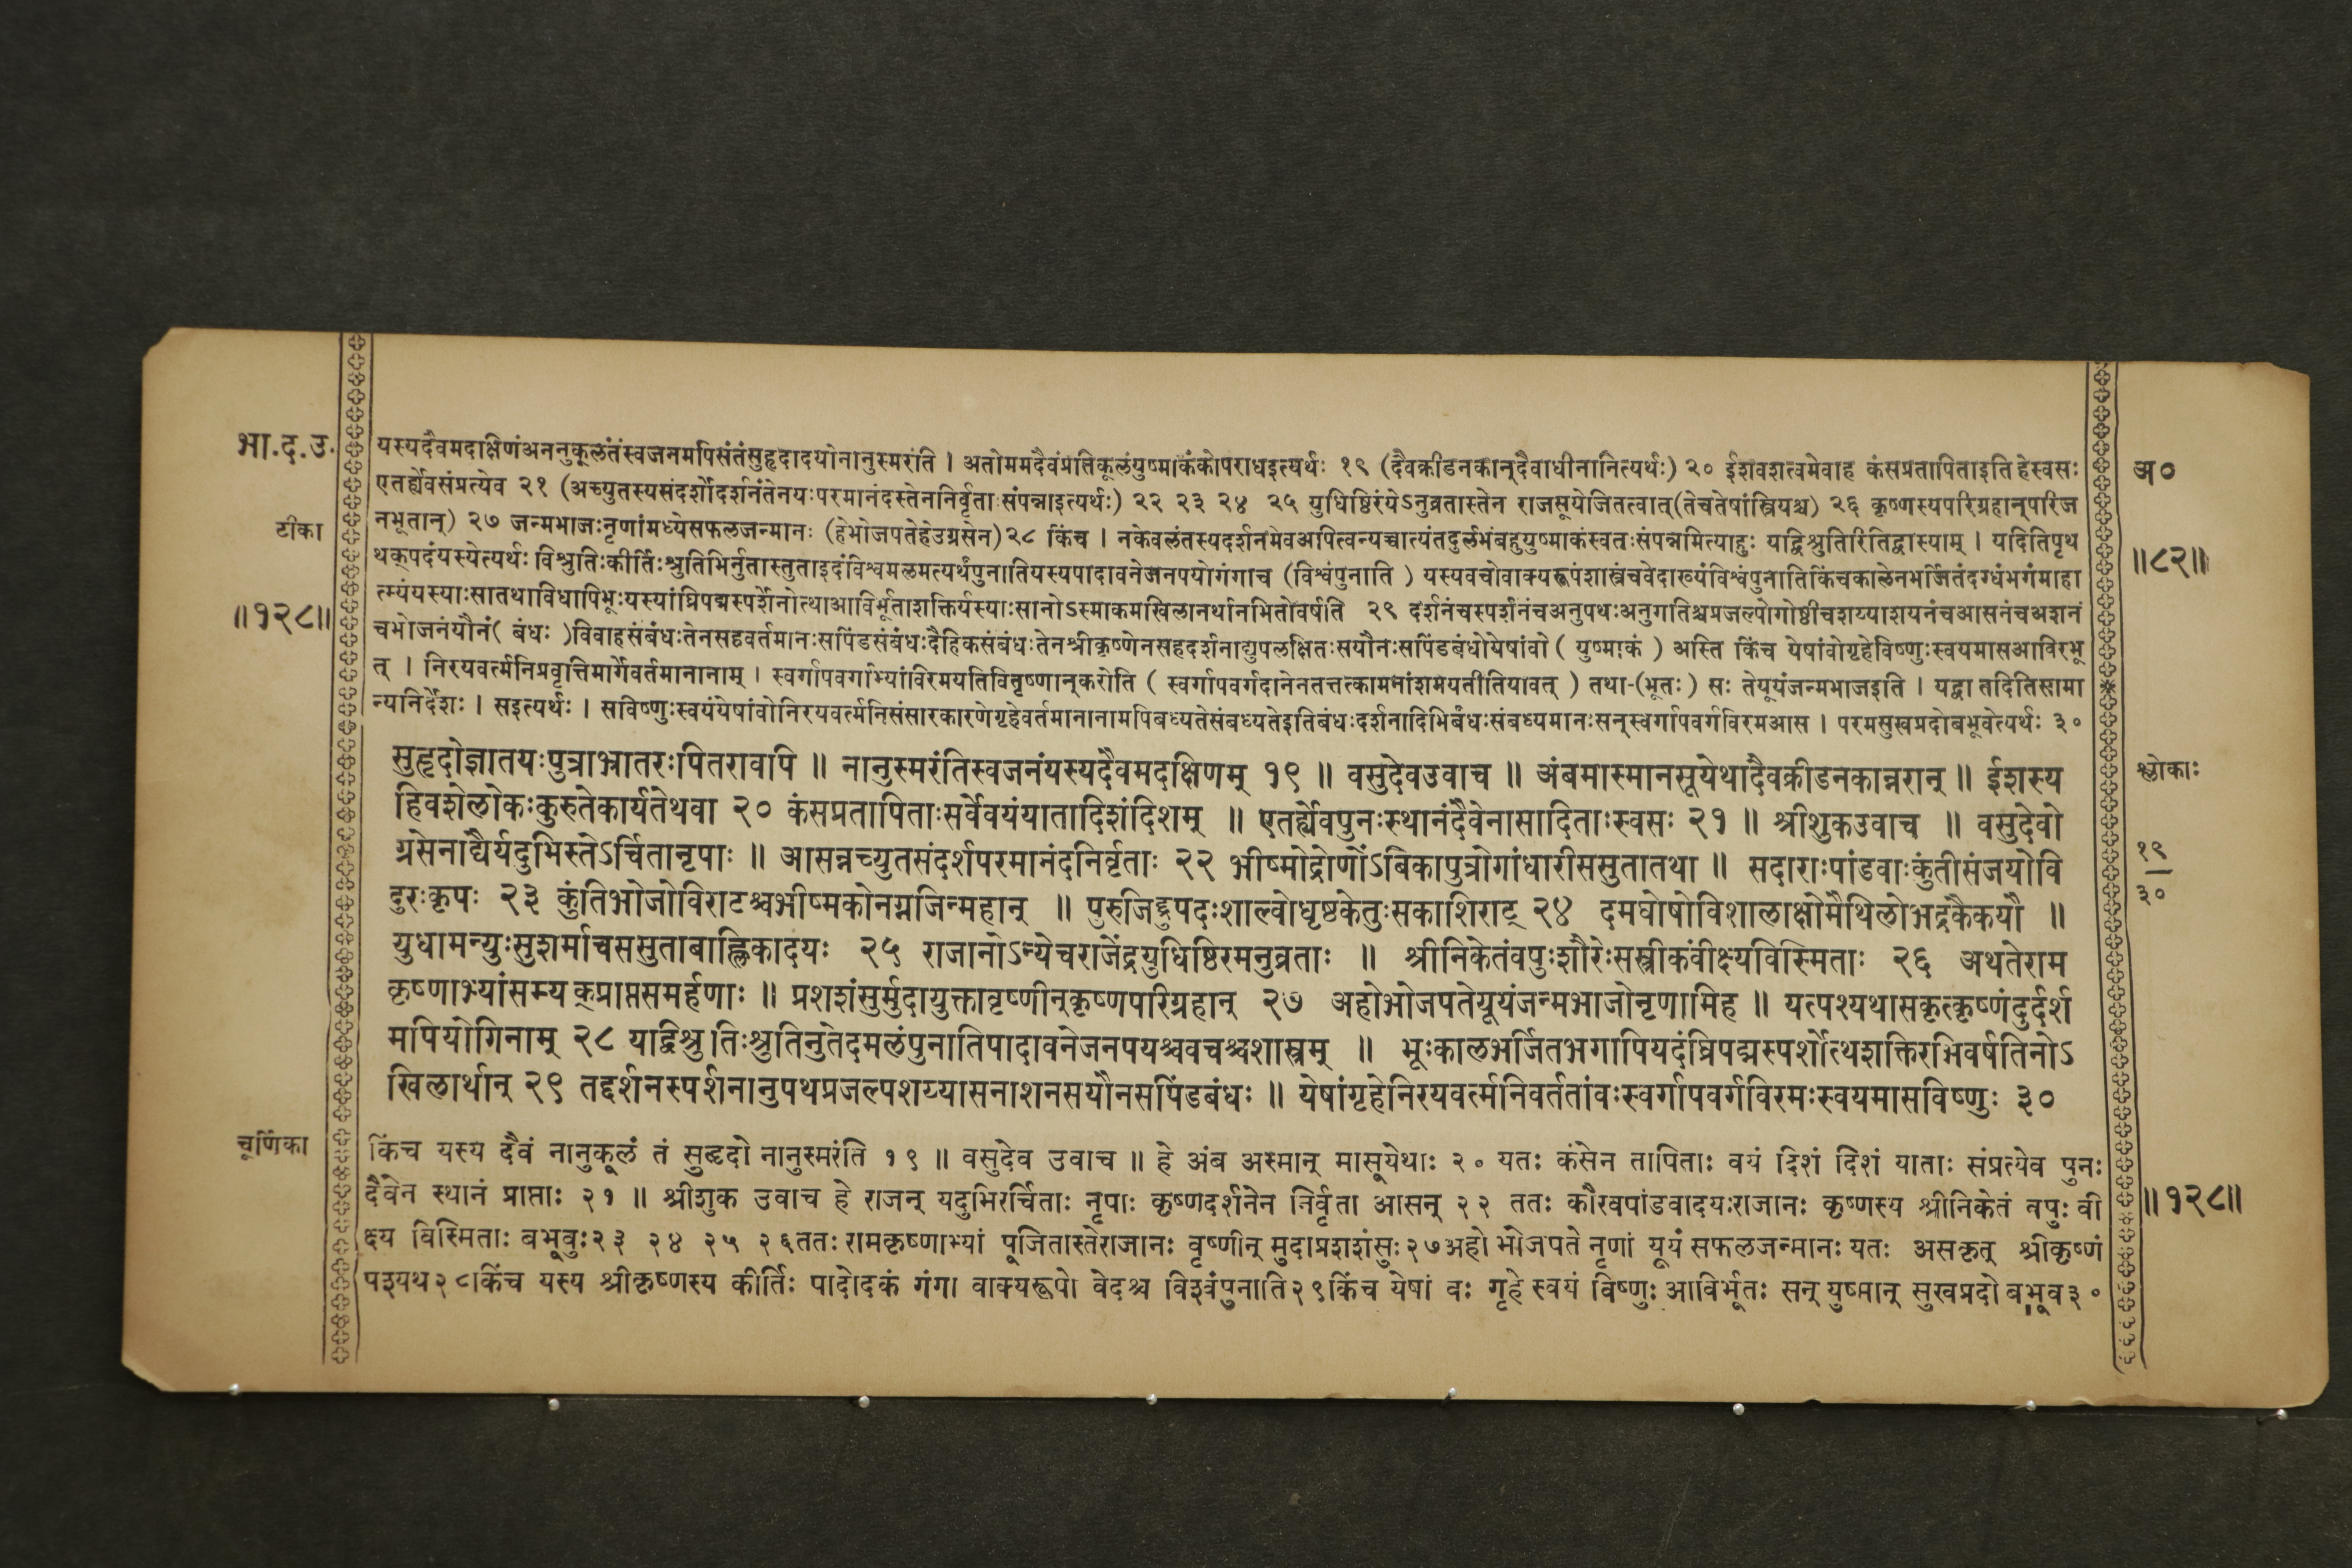 भा.द.उ.
टीका
॥१२८॥
यस्यदैवमदाक्षिणंअननुकूलंतंस्वजनमपिसंतंसुहृदादयोनानुस्मरंति । अतोममदैवंप्रतिकूलंयुष्माकंकोपराधइत्यर्थः १९ (दैवक्रीडनकान्दैवाधीनानित्यर्थः) २० ईशवशत्वमेवाह कंसप्रतापिताइति हेस्वसः
एतर्ह्येवसंप्रत्येव २१ (अच्युतस्यसंदर्शोदर्शनंतेनयःपरमानंदस्तेननिर्वृताःसंपन्नाइत्यर्थः) २२ २३ २४ २५ युधिष्ठिरंयेऽनुव्रतास्तेन राजसूयेजितत्वात्(तेचतेषांस्त्रियश्च) २६ कृष्णस्यपरिग्रहान्परिज
नभूतान्) २७ जन्मभाजःनृणांमध्येसफलजन्मानः (हेभोजपतेहेउग्रसेन)२८ किंच । नकेवलंतस्यदर्शनमेवअपित्वन्यच्चात्यंतदुर्लभंबहुयुष्माकंस्वतःसंपन्नमित्याहुः यद्विश्रुतिरितिद्वाभ्याम् । यदितिपृथ
थक्पदंयस्येत्यर्थः विश्रुतिःकीर्तिःश्रुतिभिर्नुतास्तुताइदंविश्वमलमत्यर्थंपुनातियस्यपादावनेजनपयोगंगाच (विश्वंपुनाति ) यस्यवचोवाक्यरूपंशास्त्रंचवेदाख्यंविश्वंपुनातिकिंचकालेनभर्जितंदग्धंभगंमाहा
त्म्यंयस्याःसातथाविधापिभूःयस्यांघ्रिपद्मस्पर्शेनोत्थाआविर्भूताशक्तिर्यस्याःसानोऽस्माकमखिलानर्थानभितोवर्षति २९ दर्शनंचस्पर्शनंचअनुपथःअनुगातिश्चप्रजल्पोगोष्ठीचशय्याशयनंचआसनंचअशनं
चभोजनंयौनं( बंधः )विवाहसंबंधःतेनसहवर्तमानःसपिंडसंबंधःदैहिकसंबंधःतेनश्रीकृष्णेनसहदर्शनाद्युपलक्षितःसयौनःसपिंडबंधोयेषांवो ( युष्माकं ) अस्ति किंच येषांवोगृहेविष्णुःस्वयमासआविरभू
त् । निरयवर्त्मनिप्रवृत्तिमार्गेवर्तमानानाम् । स्वर्गापवर्गाभ्यांविरमयतिवितृष्णान्करोति ( स्वर्गापवर्गदानेनतत्तत्कामनांशमयतीतियावत् ) तथा-(भूतः) सः तेयूयंजन्मभाजइति । यद्वा तदितिसामा
न्यनिर्देशः । सइत्यर्थः । सविष्णुःस्वयंयेषांवोनिरयवर्त्मनिसंसारकारणेगृहेवर्तमानानामपिबध्यतेसंबध्यतेइतिबंधःदर्शनादिभिर्बंधःसंबध्यमानःसन्स्वर्गापवर्गविरमआस । परमसुखप्रदोबभूवेत्यर्थः ३०
अ०
॥८२॥
सुहृदोज्ञातयःपुत्राभ्रातरःपितरावपि ॥ नानुस्मरंतिस्वजनंयस्यदैवमदक्षिणम् १९ ॥ वसुदेवउवाच ॥ अंबमास्मानसूयेथादैवक्रीडनकान्नरान् ॥ ईशस्य
हिवशेलोकःकुरुतेकार्यतेथवा २० कंसप्रतापिताःसर्वेवयंयातादिशंदिशम् ॥ एतर्ह्येवपुनःस्थानंदैवेनासादिताःस्वसः २१ ॥ श्रीशुकउवाच ॥ वसुदेवो
ग्रसेनाद्यैर्यदुभिस्तेऽर्चितानृपाः ॥ आसन्नच्युतसंदर्शपरमानंदनिर्वृताः २२ भीष्मोद्रोणोंऽबिकापुत्रोगांधारीससुतातथा ॥ सदाराःपांडवाःकुंतीसंजयोवि
दुरःकृपः २३ कुंतिभोजोविराटश्चभीष्मकोनग्नजिन्महान् ॥ पुरुजिद्द्रुपदःशाल्वोधृष्टकेतुःसकाशिराट् २४ दमघोषोविशालाक्षोमैथिलोभद्रकैकयौ ॥
युधामन्युःसुशर्माचससुताबाह्लिकादयः २५ राजानोऽन्येचराजेंद्रयुधिष्ठिरमनुव्रताः ॥ श्रीनिकेतंवपुःशौरेःसस्त्रीकंवीक्ष्यविस्मिताः २६ अथतेराम
कृष्णाभ्यांसम्यक्प्राप्तसमर्हणाः ॥ प्रशशंसुर्मुदायुक्तावृष्णीन्कृष्णपरिग्रहान् २७ अहोभोजपतेयूयंजन्मभाजोनृणामिह ॥ यत्पश्यथासकृत्कृष्णंदुर्दर्श
मपियोगिनाम् २८ यद्विश्रुतिःश्रुतिनुतेदमलंपुनातिपादावनेजनपयश्चवचश्चशास्त्रम् ॥ भूःकालभर्जितभगापियदंघ्रिपद्मस्पर्शोत्थशक्तिरभिवर्षतिनोऽ
खिलार्थान् २९ तद्दर्शनस्पर्शनानुपथप्रजल्पशय्यासनाशनसयौनसपिंडबंधः ॥ येषांगृहेनिरयवर्त्मनिवर्ततांवःस्वर्गापवर्गविरमःस्वयमासविष्णुः ३०
श्लोकाः
१९
३०
चूर्णिका
किंच यस्य दैवं नानुकूलं तं सुहृदो नानुस्मरंति १९ ॥ वसुदेव उवाच ॥ हे अंब अस्मान् मासूयेथाः २० यतः कंसेन तापिताः वयं दिशं दिशं याताः संप्रत्येव पुनः
दैवेन स्थानं प्राप्ताः २१ ॥ श्रीशुक उवाच हे राजन् यदुभिरर्चिताः नृपाः कृष्णदर्शनेन निर्वृता आसन् २२ ततः कौरवपांडवादयःराजानः कृष्णस्य श्रीनिकेतं वपुः वी
क्ष्य विस्मिताः बभूवुः२३ २४ २५ २६ततः रामकृष्णाभ्यां पूजितास्तेराजानः वृष्णीन् मुदाप्रशशंसुः२७अहो भोजपते नृणां यूयं सफलजन्मानः यतः असकृत् श्रीकृष्णं
पश्यथ२८।किंच यस्य श्रीकृष्णस्य कीर्तिः पादोदकं गंगा वाक्यरूपो वेदश्च विश्वंपुनाति२९किंच येषां वः गृहे स्वयं विष्णुः आविर्भूतः सन् युष्मान् सुखप्रदो बभूव३०
॥१२८॥